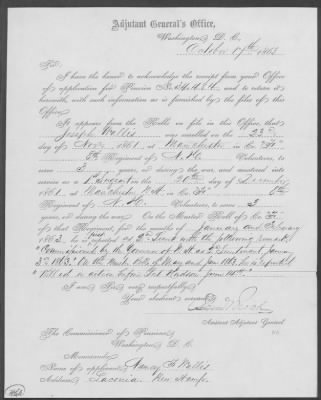 Adjutant General's Office,
Washington, D. C.
October 17th 1863
Sir:
I have the honor to acknowledge the receipt from your Office
of application for Pension No. 34,424 and to return it
herewith, with such information as is furnished by the files of this
Office.
It appears from the Rolls on file in this Office, that
Joseph Wallis was enrolled on the 23d
day of Nov. 1861, at Manchester in Co. "F"
8th Regiment of N. H. Volunteers, to serve
3 years, or during the war, and mustered into
service as a 1st Sergeant on the 20th day of December
1861, at Manchester N.H. in Co. "F" 8th
Regiment of N. H. Volunteers, to serve 3
years, or during the war. On the Muster Roll of Co. "F"
of that Regiment, for the months of January and February
1863, he is reported as 2d Lieut with the following remark
"Commissioned by the Governor of N.H. as 2d Lieutenant January
3d 1863." On the Muster Roll of May and June 1863 he is reported
"Killed in action before Port Hudson June 14th"
I am, Sir, very respectfully,
Your obedient servant,
Assistant Adjutant General
The Commissioner of Pensions
Washington, D. C.
Memoranda:
Name of applicant, Wallis
Address, Laconia New Hamp.